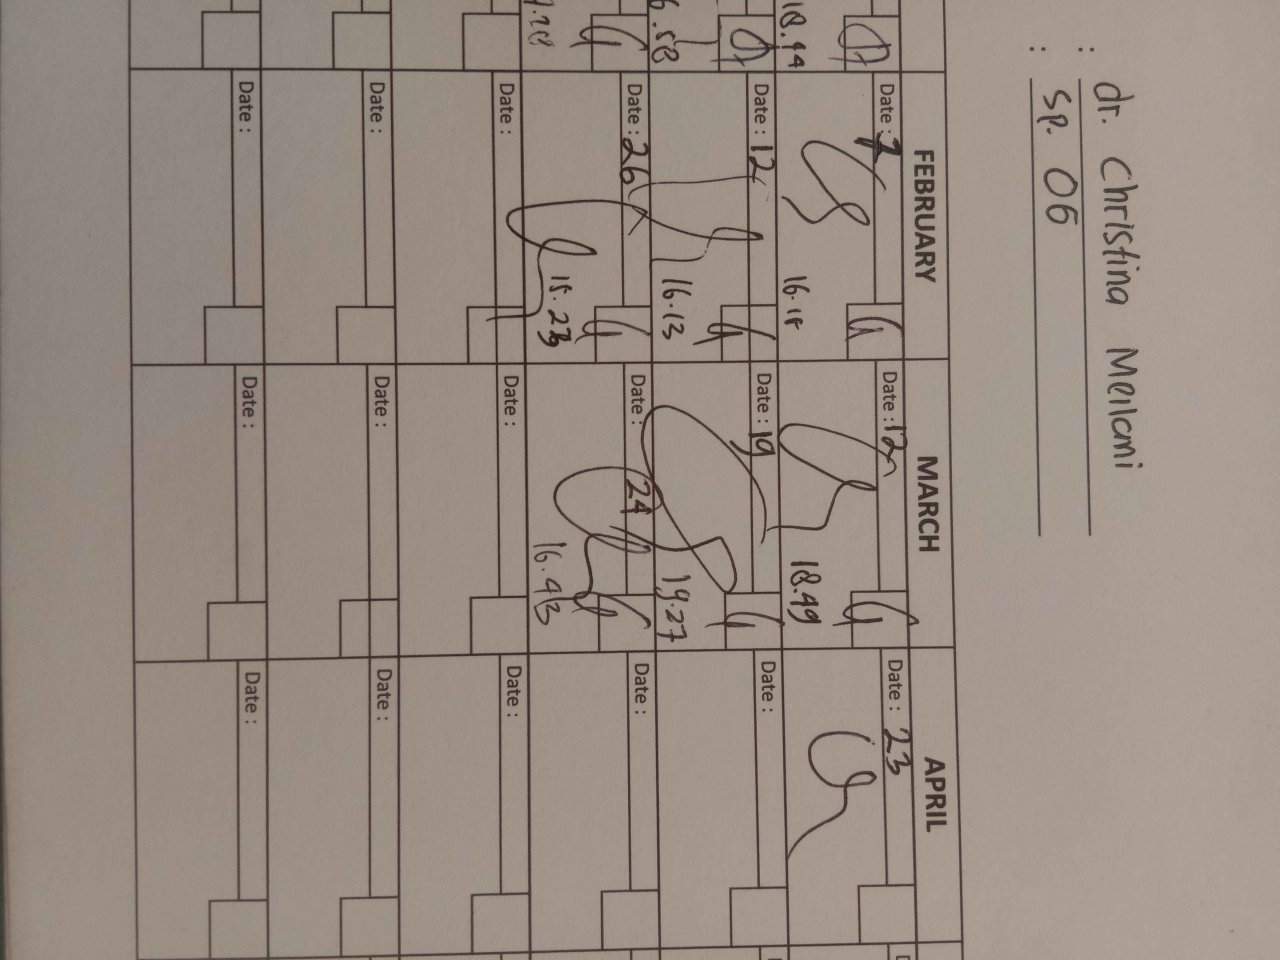 : dr. Christina Meilami
: Sp. OG
FEBRUARY MARCH APRIL
18.44
Date : 7 Date : 12 Date : 23
16.18 18.49
6.58
Date : 12 Date : 19 Date :
16.13 19.27
Date : 26 Date : 24 Date :
15.23 16.43
Date : Date : Date :
Date : Date : Date :
Date : Date : Date :